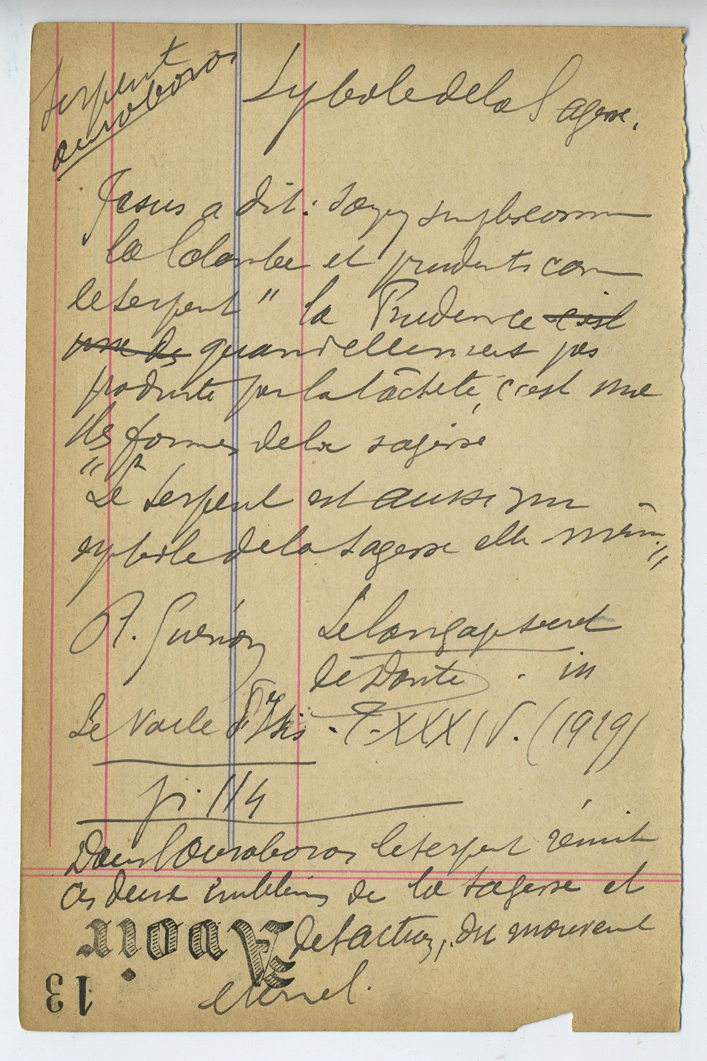 Serpent
ouroboros
Sybole de la Sagesse.
Jesus a dit : Soyez simples comm
la Colombe et prudents com
le serpent" la Prudence c'est
une des quand elle n'est pas
produite par la lâcheté, c'est une
des formes de la sagesse
"Le serpent est aussi un
sybole de la sagesse elle même"
R. Guénon Le langage secret
de Dante . in
Le Voile d'Isis - T. XXXIV. (1929)
p. 114
Dans l'ouroboros le serpent réunit
ces deux emblèmes de la sagesse et
de l'action, du mouvement
éternel.
Avoir
13